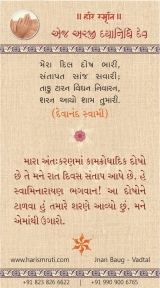 ॥ હરિ સ્મૃતિ ॥
એજ અરજી દયાનિધિ દેવ
મેરા દિલ દોષ ભારી,
સંતાપત સાંજ સવારી;
તાકુ ટારન વિઘન નિવારન,
શરન આયો શામ તુમારી.
(દેવાનંદ સ્વામી)
મારા અંતઃકરણમાં કામક્રોધાદિક દોષો
છે તે મને રાત દિવસ સંતાપ આપે છે. હે
સ્વામિનારાયણ ભગવાન! આ દોષોને
ટાળવા હું તમારે શરણે આવ્યો છું. મને
એમાંથી ઉગારો.
www.harismruti.com
Jnan Baug - Vadtal
+91 823 826 6622 | +91 990 900 6765